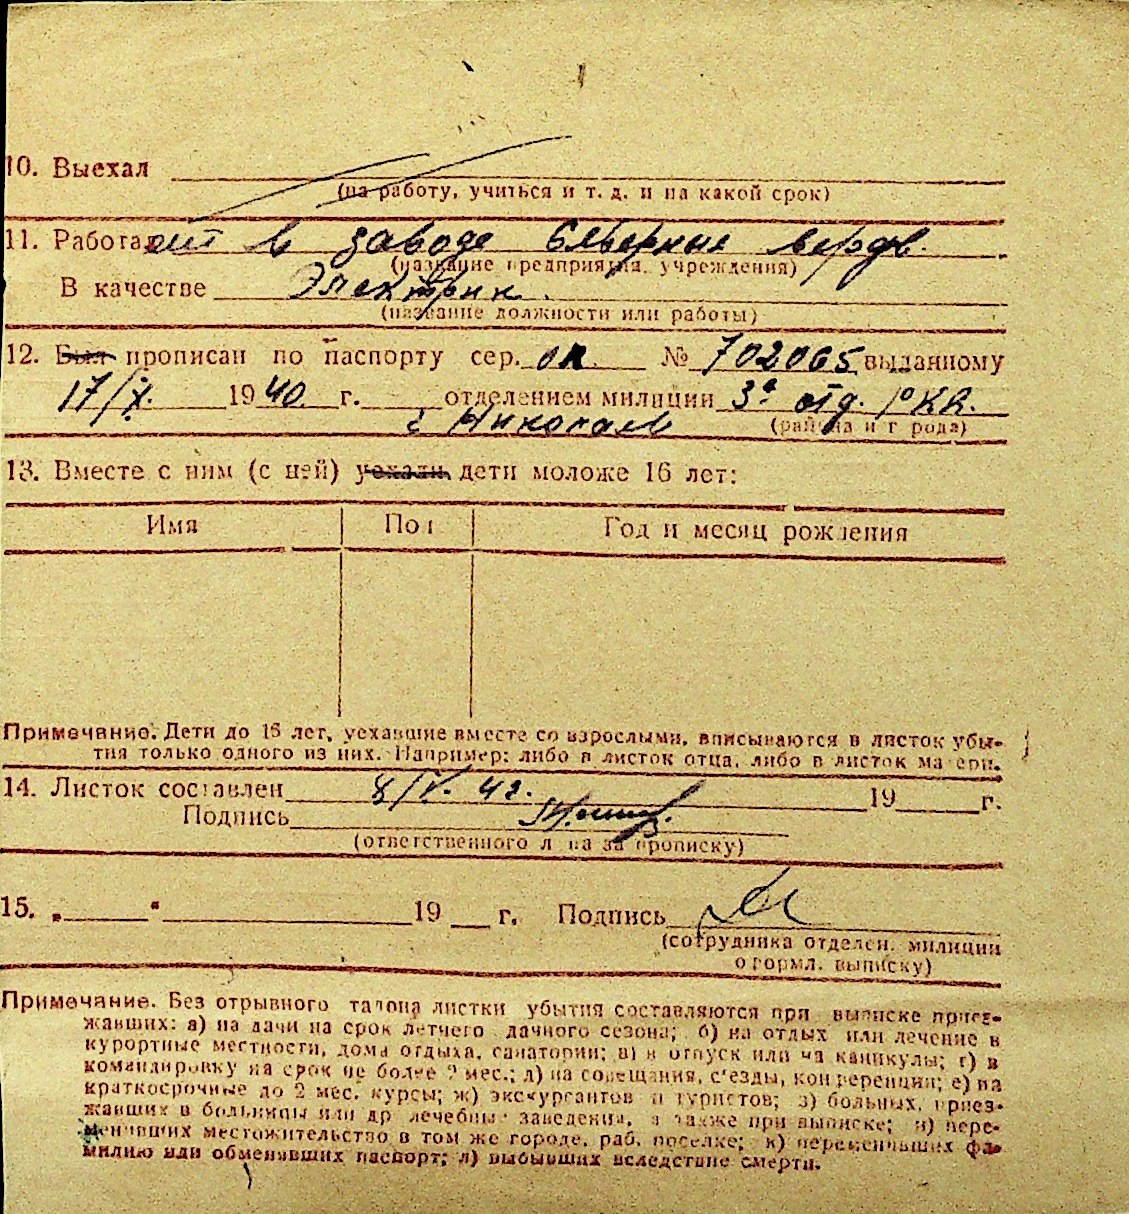 10. Выехал
(на работу, учиться и т. д. и на какой срок)
11. Работает в заводе Северные верфи.
(название предприятия, учреждения)
В качестве Электрик.
(название должности или работы)
12. Был прописан по паспорту сер. ОК. № 702065 выданному
17/X. 1940 г. отделением милиции 3е отд. РКК.
г Николаев (района и города)
13. Вместе с ним (с ней) уехали дети моложе 16 лет:
Имя Пол Год и месяц рождения
Примечание. Дети до 16 лет, уехавшие вместе со взрослыми, вписываются в листок убы-
тия только одного из них. Например: либо в листок отца, либо в листок матери.
14. Листок составлен 8/V. 42. 19 г.
Подпись
(ответственного лица за прописку)
15. „ " 19 г. Подпись
(сотрудника отделен. милиции
оформл. выписку)
Примечание. Без отрывного талона листки убытия составляются при выписке приез-
жавших: а) на дачи на срок летнего дачного сезона; б) на отдых или лечение в
курортные местности, дома отдыха, санатории; в) в отпуск или на каникулы; г) в
командировку на срок не более 2 мес.; д) на совещания, с'езды, конференции; е) на
краткосрочные до 2 мес. курсы; ж) экскурсантов и туристов; з) больных, приез-
жавших в больницы или др лечебные заведения, а также при выписке; и) пере-
менивших местожительство в том же городе, раб. поселке; к) переменивших фа-
милию или обменявших паспорт; л) выбывших вследствие смерти.